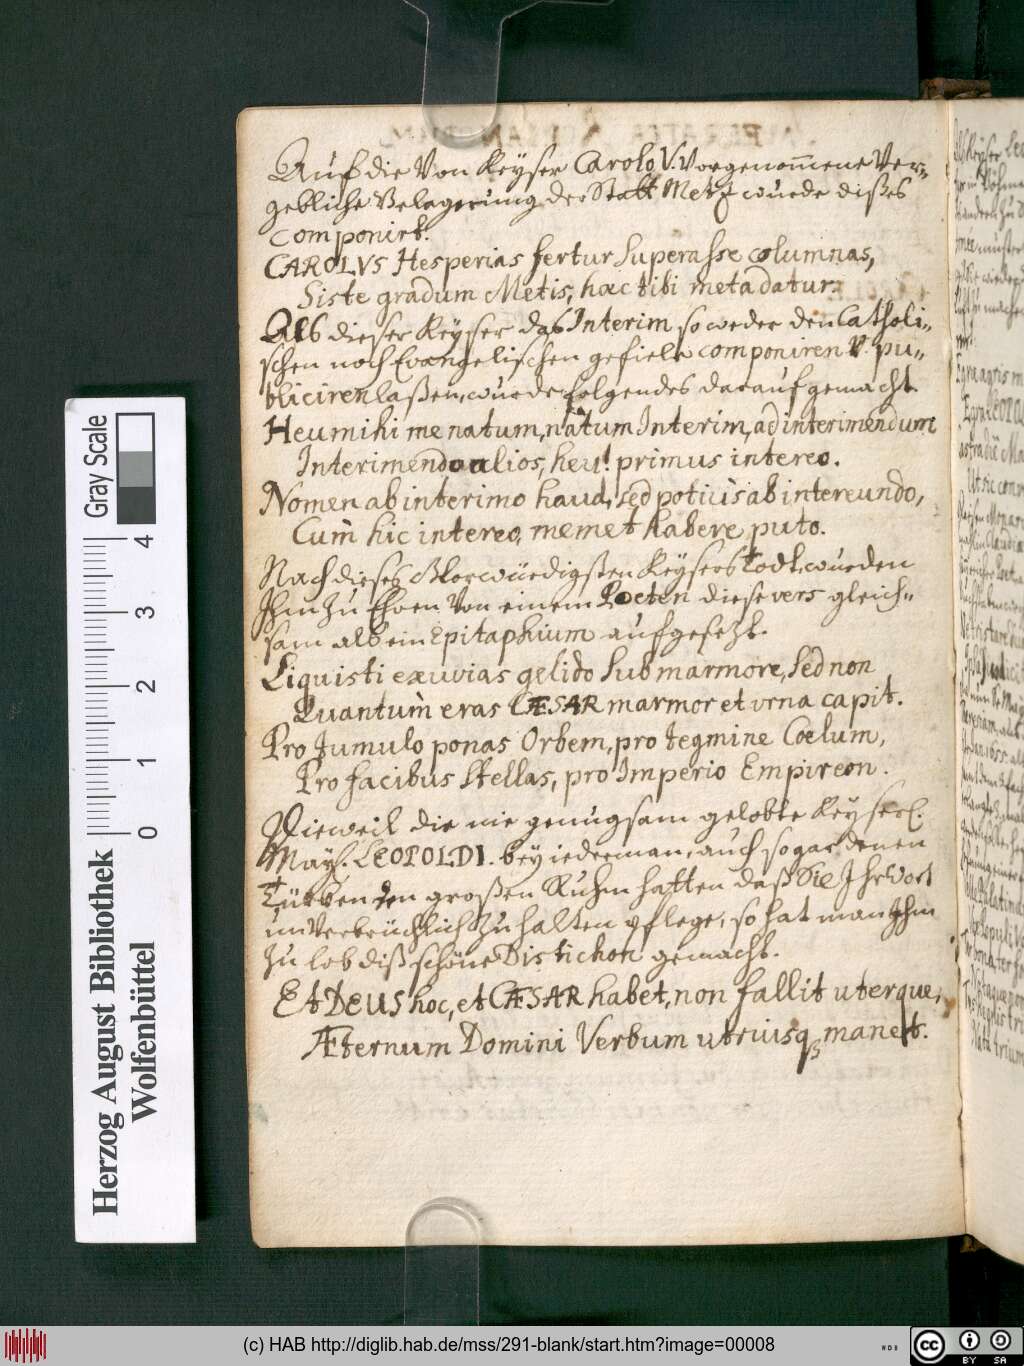 Auf die von Keyser Carolo V. vorgenom̄ene ver-
gebliche Belagerung der Statt Metz wurde dißes
componirt.
CAROLVS Hesperias fertur superasse columnas,
Siste gradum Metis, hæc tibi meta datur.
Alß dieser Keyser das Interim so weder den Catholi-
schen noch Evangelischen gefiele componiren v. pu-
bliciren laßen, wurde folgendes darauf gemacht.
Heu mihi me natum, natum Interim, ad interimendum
Interimendo alios, heu! primus intereo.
Nomen ab interimo haud, sed potiùs ab intereundo,
Cum hic intereo, memet habere puto.
Nach dieses Glorwürdigsten Keysers Todt, wurden
Ihm zu Ehren von einem Poeten diese vers gleich-
sam alß ein Epitaphium aufgesetzt.
Liquisti exuvias gelido sub marmore, sed non
Quantùm eras CÆSAR marmor et vrna capit.
Pro Tumulo ponas Orbem, pro tegmine Coelum,
Pro facibus Stellas, pro Imperio Empireon.
Dieweil die nie genugsam gelobte Keyserl.
May. LEOPOLDI. bey iederman, auch sogar denen
Türken den großen Ruhm hatten daß Sie Ihr Wort
unverbrüchlich zu halten pflege, so hat man Ihm
zu lob diß schöne Distichon gemacht.
Et DEUS hoc, et CÆSAR habet, non fallit uterque,
Æternum Domini Verbum utriusq₃ manet.
Herzog August Bibliothek
Wolfenbüttel
Gray Scale
0 1 2 3 4
(c) HAB http://diglib.hab.de/mss/291-blank/start.htm?image=00008
WDB
cc BY SA